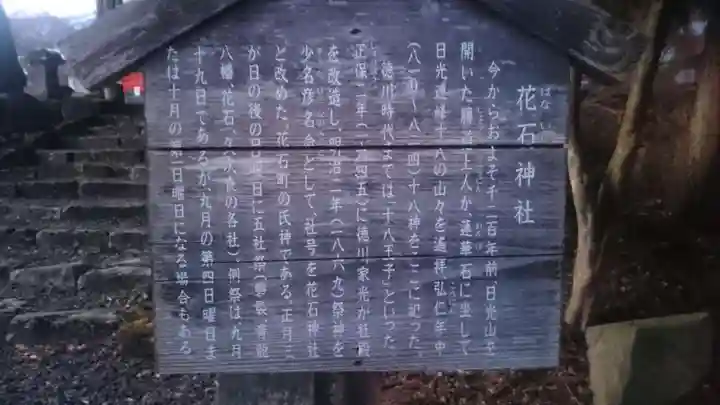 花石神社
はないし
今からおよそ千二百年前、日光山を
開いた勝道上人が、蓮華石に坐して
日光連峰十八の山々を遙拝弘仁年中
(八一〇~八二四)十八神をここに祀った。
徳川時代までは「十八王子」といった
正保二年(一六四五)に徳川家光が社殿
を改造し、明治二年(一八六九)祭神を
少名彦名命として、社号を花石神社
と改めた。花石町の氏神である。正月
が日の後の日曜日に五社祭(磐裂、青龍
八幡、花石、久次良の各社)、例祭は、九月
十九日であるが、九月の第四日曜日ま
たは十月の第一日曜日になる場合もある